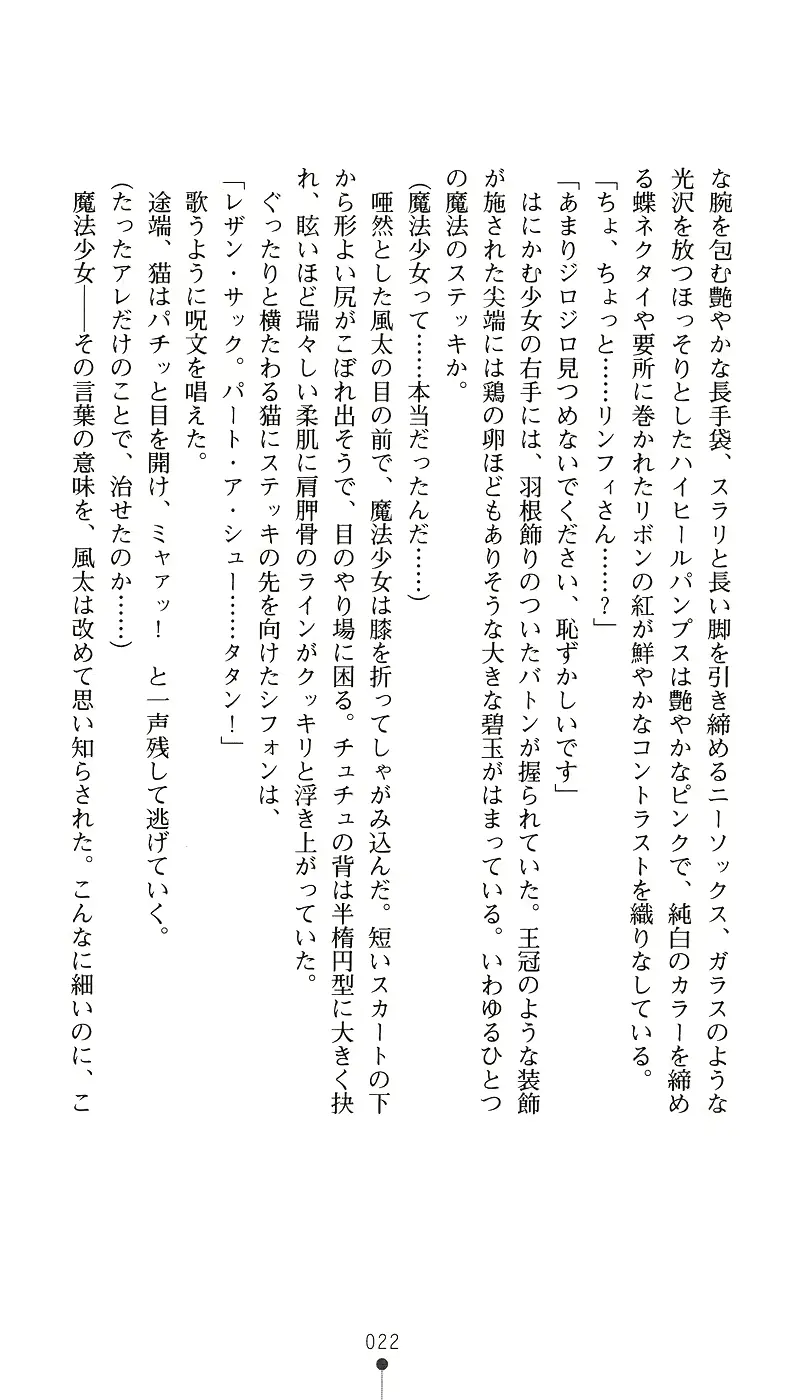 な腕を包む艶やかな長手袋、スラリと長い脚を引き締めるニーソックス、ガラスのような
光沢を放つほっそりとしたハイヒールパンプスは艶やかなピンクで、純白のカラーを締め
る蝶ネクタイや要所に巻かれたリボンの紅が鮮やかなコントラストを織りなしている。
「ちょ、ちょっと……リンフィさん……？」
「あまりジロジロ見つめないでください、恥ずかしいです」
はにかむ少女の右手には、羽根飾りのついたバトンが握られていた。王冠のような装飾
が施された尖端には鶏の卵ほどもありそうな大きな碧玉がはまっている。いわゆるひとつ
の魔法のステッキか。
（魔法少女って……本当だったんだ……）
唖然とした風太の目の前で、魔法少女は膝を折ってしゃがみ込んだ。短いスカートの下
から形よい尻がこぼれ出そうで、目のやり場に困る。チュチュの背は半楕円型に大きく抉
れ、眩いほど瑞々しい柔肌に肩胛骨のラインがクッキリと浮き上がっていた。
ぐったりと横たわる猫にステッキの先を向けたシフォンは、
「レザン・サック。パート・ア・シュー……タタン！」
歌うように呪文を唱えた。
途端、猫はパチッと目を開け、ミャアッ！　と一声残して逃げていく。
（たったアレだけのことで、治せたのか……）
魔法少女――その言葉の意味を、風太は改めて思い知らされた。こんなに細いのに、こ
022